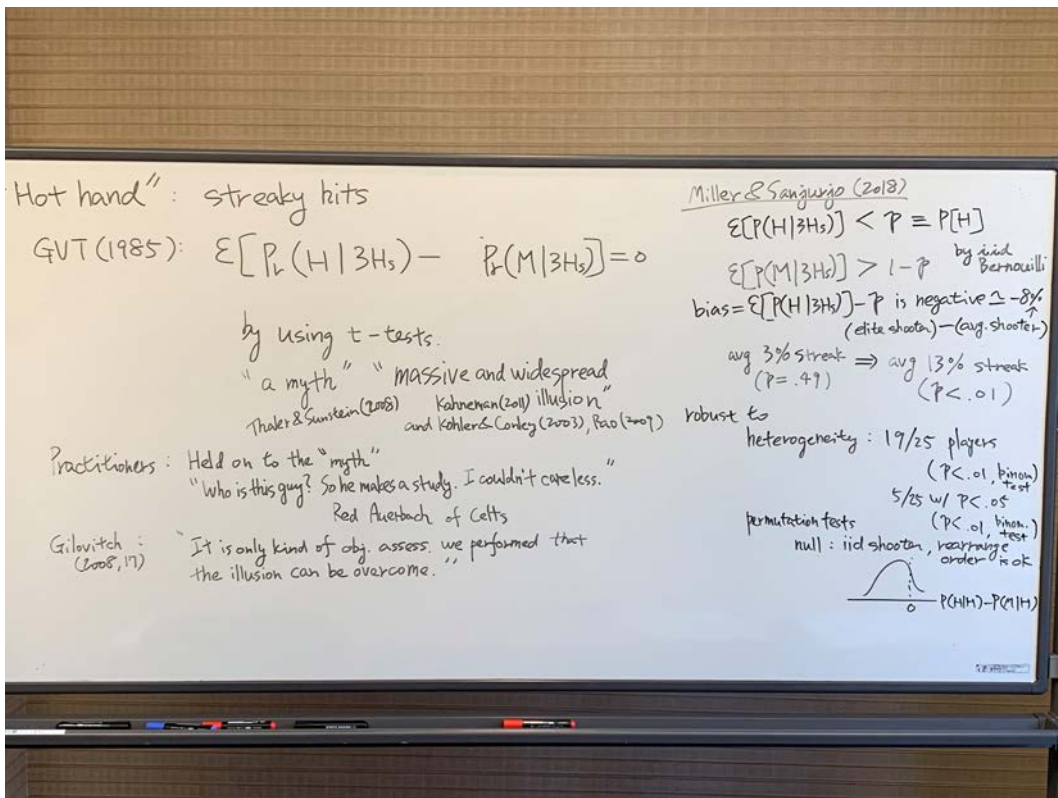 "Hot hand": streaky hits
GVT (1985): ℰ[Pr(H|3Hs) − Pr(M|3Hs)] = 0
by using t-tests.
"a myth" "massive and widespread
illusion"
Thaler & Sunstein (2008) Kahneman (2011)
and Kohler & Conley (2003), Rao (2009)
Practitioners: Held on to the "myth"
"Who is this guy? So he makes a study. I couldn't care less."
Red Auerbach of Celts
Gilovitch: "It is only kind of obj. assess. we performed that
(2008, 17) the illusion can be overcome."
Miller & Sanjurjo (2018)
ℰ[P(H|3Hs)] < P ≡ P[H]
by iid
Bernouilli
ℰ[P(M|3Hs)] > 1 − P
bias = ℰ[P(H|3Hs)] − P is negative ≃ −8%
↑
(elite shooter) − (avg. shooter)
avg 3% streak ⇒ avg 13% streak
(P = .49) (P < .01)
robust to
heterogeneity: 19/25 players
(P < .01, binom.
test)
5/25 w/ P < .05
(P < .01, binom.
test)
permutation tests
null: iid shooter, rearrange
order is ok
0 P(H|H) − P(M|H)